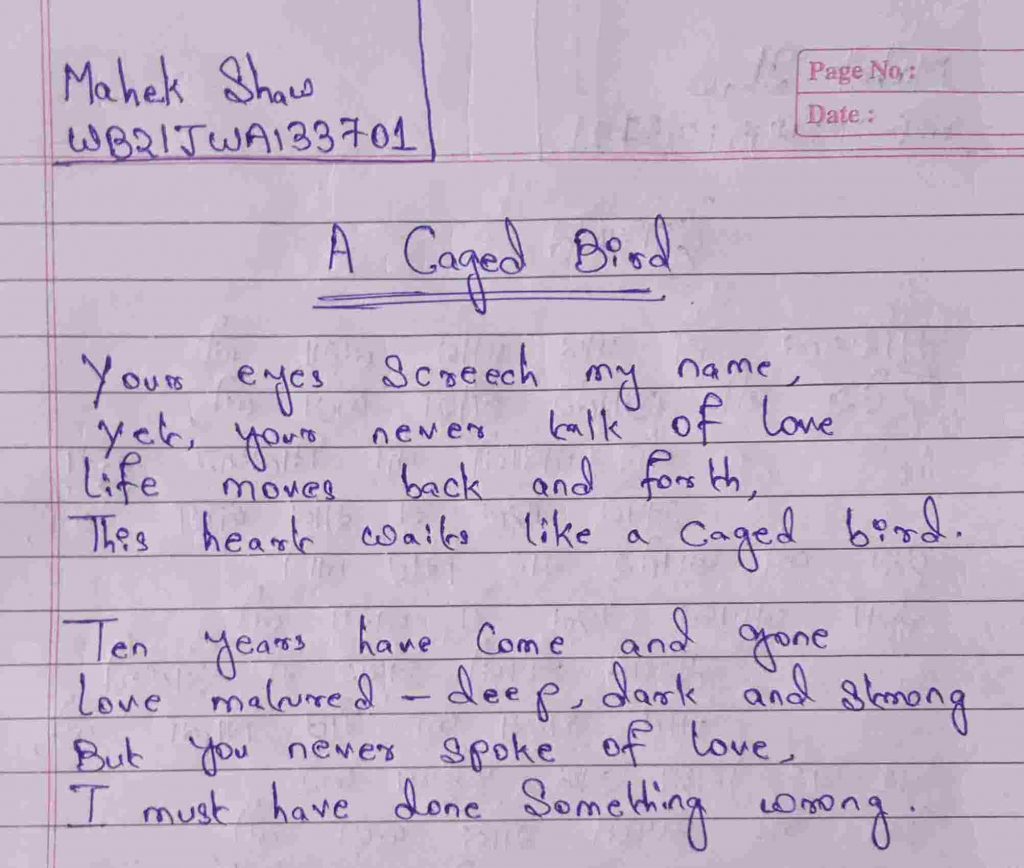 Mahek Shaw
WB21JWA133701
Page No.:
Date:
A Caged Bird
Your eyes Screech my name,
Yet, your never talk of love
Life moves back and forth,
This heart waits like a caged bird.
Ten years have come and gone
Love matured - deep, dark and strong
But you never spoke of love,
I must have done Something wrong.